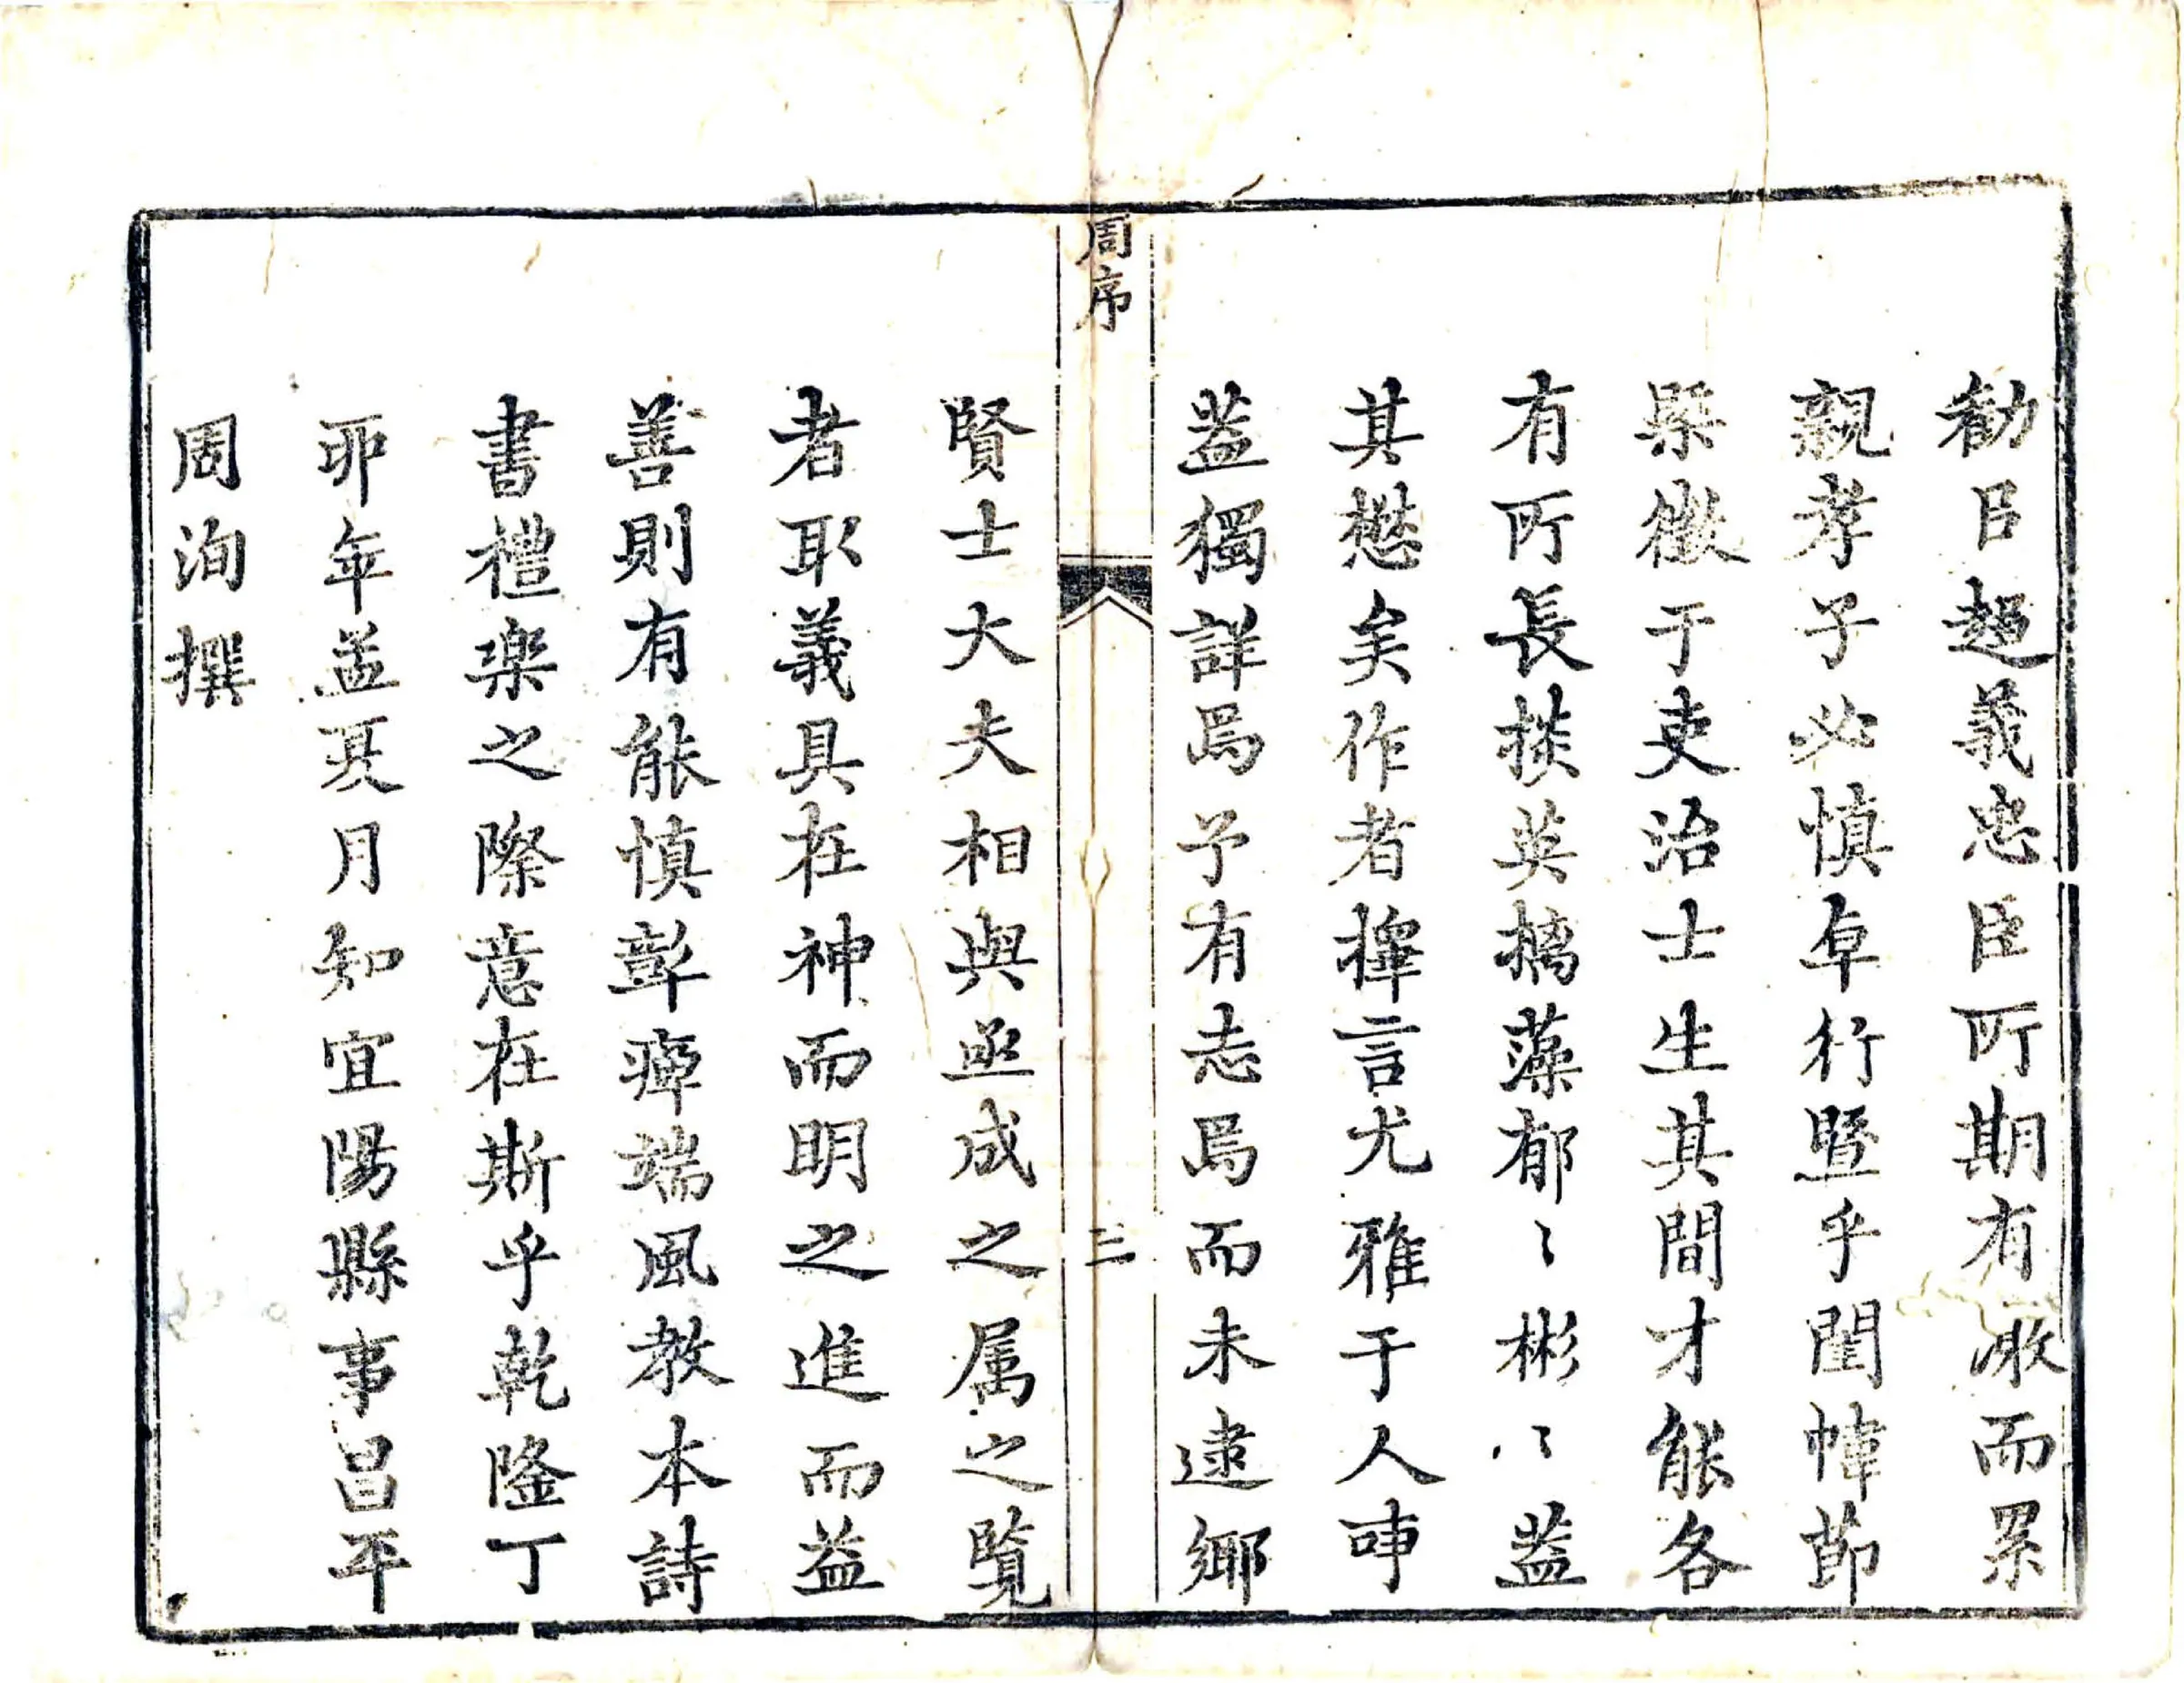 勧㠯趨義忠臣所期有激而累
親孝子必慎卓行曁乎閨幃節
槩徵于吏治士生其間才能各
有所長掞英摛藻郁〻彬〻蓋
其懋矣作者擇言尤雅于人事
蓋獨詳焉予有志焉而未逮鄉
周序
三
賢士大夫相與亟成之属之覧
者取義具在神而明之進而益
善則有能慎彰癉端風教本詩
書禮楽之際意在斯乎乾隆丁
夘年孟夏月知宜陽縣事昌平
周洵撰